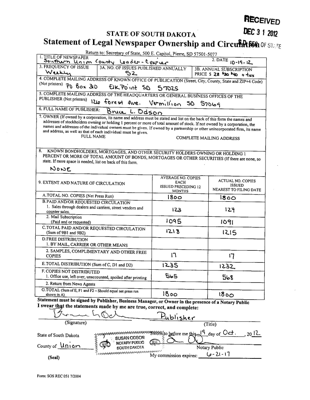 RECEIVED
DEC 31 2012
STATE OF SOUTH DAKOTA
Statement of Legal Newspaper Ownership and
Return to: Secretary of State, 500 E. Capitol, Pierre, SD 57501-5077
1. TITLE OF NEWSPAPER
Southern Union County Leader-Courier
2. DATE
10-19-12
3. FREQUENCY OF ISSUE
Weekly
3A. NO. OF ISSUES PUBLISHED ANNUALLY
52
3B. ANNUAL SUBSCRIPTION
PRICE $
4. COMPLETE MAILING ADDRESS OF KNOWN OFFICE OF PUBLICATION (Street, City, County, State and ZIP+4 Code)
(Not printers) Po Box 30 Elk Point SD 57025
5. COMPLETE MAILING ADDRESS OF THE HEADQUARTERS OR GENERAL BUSINESS OFFICES OF THE
PUBLISHER (Not printers) 120 Forest Ave. Vermillion SD 57069
6. FULL NAME OF PUBLISHER: Bruce L. Odson
7. OWNER (If owned by a corporation, its name and address must be stated and list on the back of this form the names and
addresses of stockholders owning or holding 1 percent or more of total amount of stock. If not owned by a corporation, the
names and addresses of the individual owners must be given. If owned by a partnership or other unincorporated firm, its name
and address, as well as that of each individual must be given.
FULL NAME COMPLETE MAILING ADDRESS
8. KNOWN BONDHOLDERS, MORTGAGES, AND OTHER SECURITY HOLDERS OWNING OR HOLDING 1
PERCENT OR MORE OF TOTAL AMOUNT OF BONDS, MORTGAGES OR OTHER SECURITIES (If there are none, so
state. If more space is needed, list on back of this form.
NONE
9. EXTENT AND NATURE OF CIRCULATION
AVERAGE NO. COPIES
EACH
ISSUED PRECEDING 12
MONTHS
ACTUAL NO. COPIES
ISSUED
NEAREST TO FILING DATE
A. TOTAL NO. COPIES (Net Press Run) 1800 1800
B. PAID AND/OR REQUESTED CIRCULATION
1. Sales through dealers and carriers, street vendors and
counter sales 123 124
2. Mail Subscription
(Paid and or requested) 1095 1091
C. TOTAL PAID AND/OR REQUESTED CIRCULATION
(Sum of 9B1 and 9B2) 1218 1215
D. FREE DISTRIBUTION
1. BY MAIL, CARRIER OR OTHER MEANS
2. SAMPLES, COMPLIMENTARY AND OTHER FREE
COPIES 17 17
E. TOTAL DISTRIBUTION (Sum of C, D1 and D2) 1235 1232
F. COPIES NOT DISTRIBUTED
1. Office use, left over, unaccounted, spoiled after printing 565 568
2. Return from News Agents
G. TOTAL (Sum of E, F1 and F2 - Should equal net press run
shown in A) 1800 1800
Statement must be signed by Publisher, Business Manager, or Owner in the presence of a Notary Public
I swear that the statements made by me are true, correct, and complete:
Publisher
(Signature) (Title)
State of South Dakota
County of Union
(Seal)
SUSAN ODSON
NOTARY PUBLIC
SOUTH DAKOTA
before me this 19 day of Oct. 2012
Notary Public
My commission expires: 6-21-17
Form: SOS REC 051 7/2004